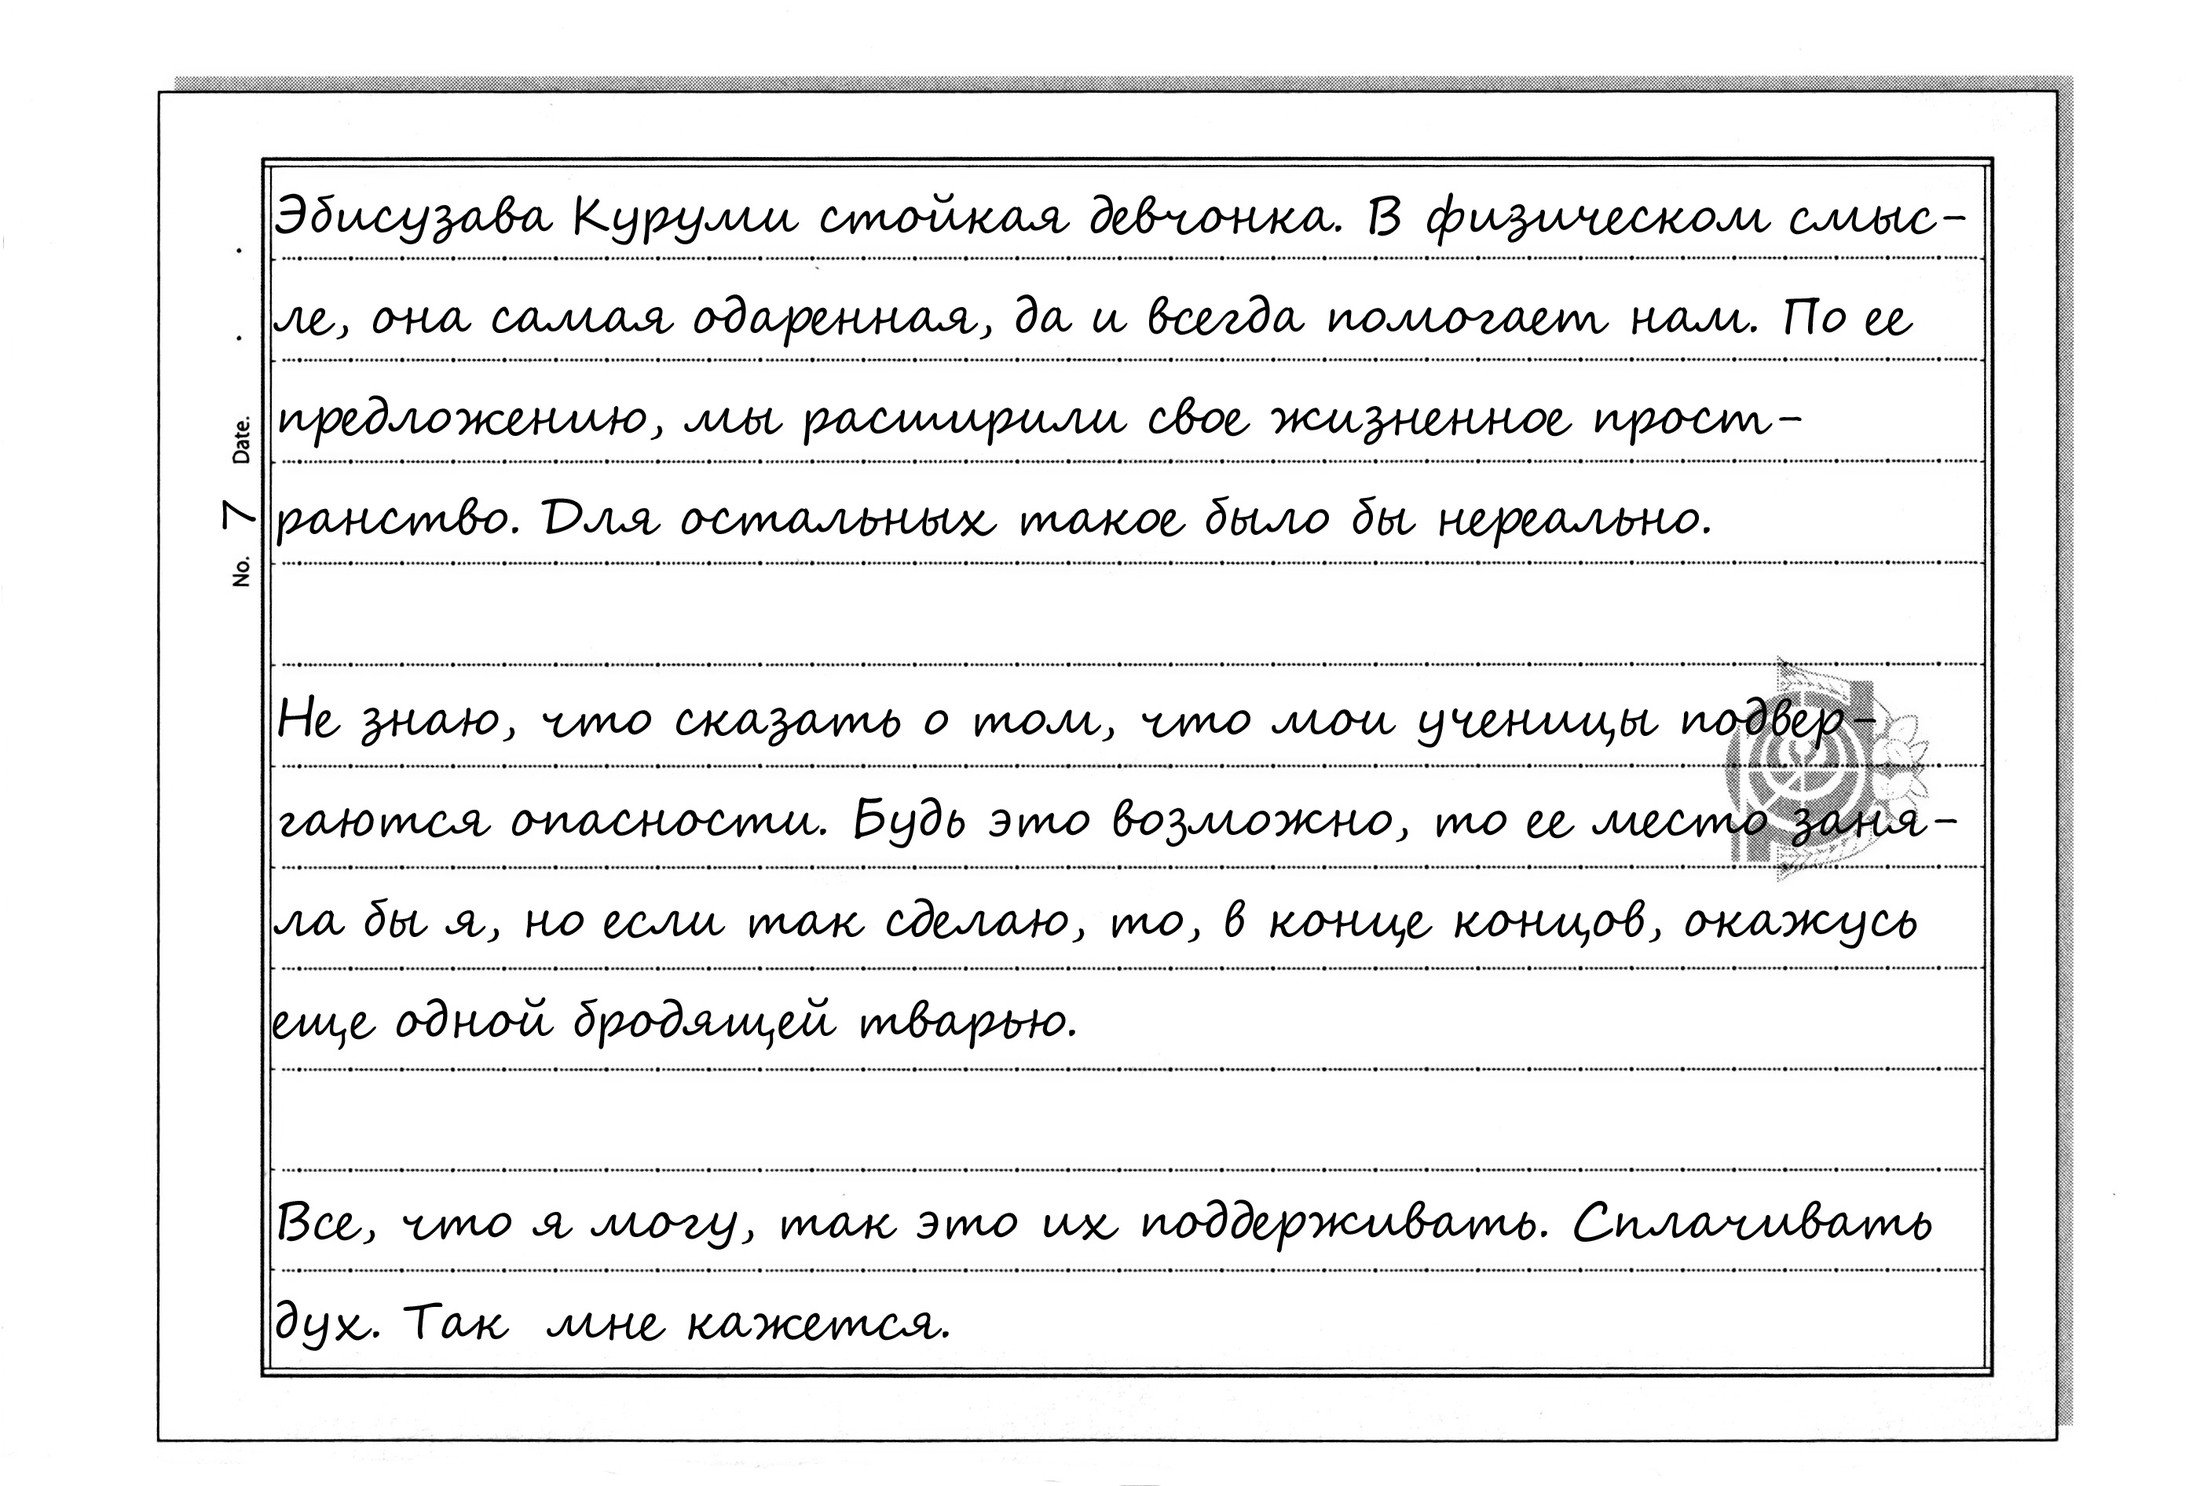 Эбисузава Куруми стойкая девчонка. В физическом смыс-
ле, она самая одаренная, да и всегда помогает нам. По ее
предложению, мы расширили свое жизненное прост-
ранство. Для остальных такое было бы нереально.
Не знаю, что сказать о том, что мои ученицы подвер-
гаются опасности. Будь это возможно, то ее место заня-
ла бы я, но если так сделаю, то, в конце концов, окажусь
еще одной бродящей тварью.
Все, что я могу, так это их поддерживать. Сплачивать
дух. Так мне кажется.
No. 7 Date. . .